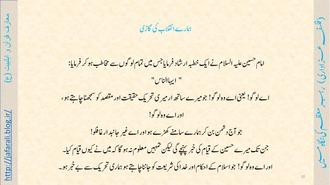 ہمارے انقلاب کی گاڑی
امام حسین علیہ السلام نے ایک خطبہ ارشاد فرمایا جس میں تمام لوگوں سے مخاطب ہو کر فرمایا:
" ایہا الناس "
اے لوگو! یعنی اے وہ لوگو! جو میرے ساتھ اور میری تحریک، حقیقت اور مقصد کو سمجھنا چاہتے ہو،
اور اے وہ لوگو!
جو آج دشمن بن کر ہمارے سامنے کھڑے ہو اور اے غیر جانبدار غافلو!
جن تک میرے حسین کے قیام کی خبر پہنچے گی لیکن تمہیں معلوم نہ ہو گا کہ میں نے کیوں قیام کیا۔
اور اے وہ لوگو! جو اسلام کے احکام اور خدا کی شریعت کو جاننا چاہتے ہو ہماری تحریک سے بے خبر ہو۔
معارف قرآن و اہلبیت (ع)
http://jafarali.blog.ir/